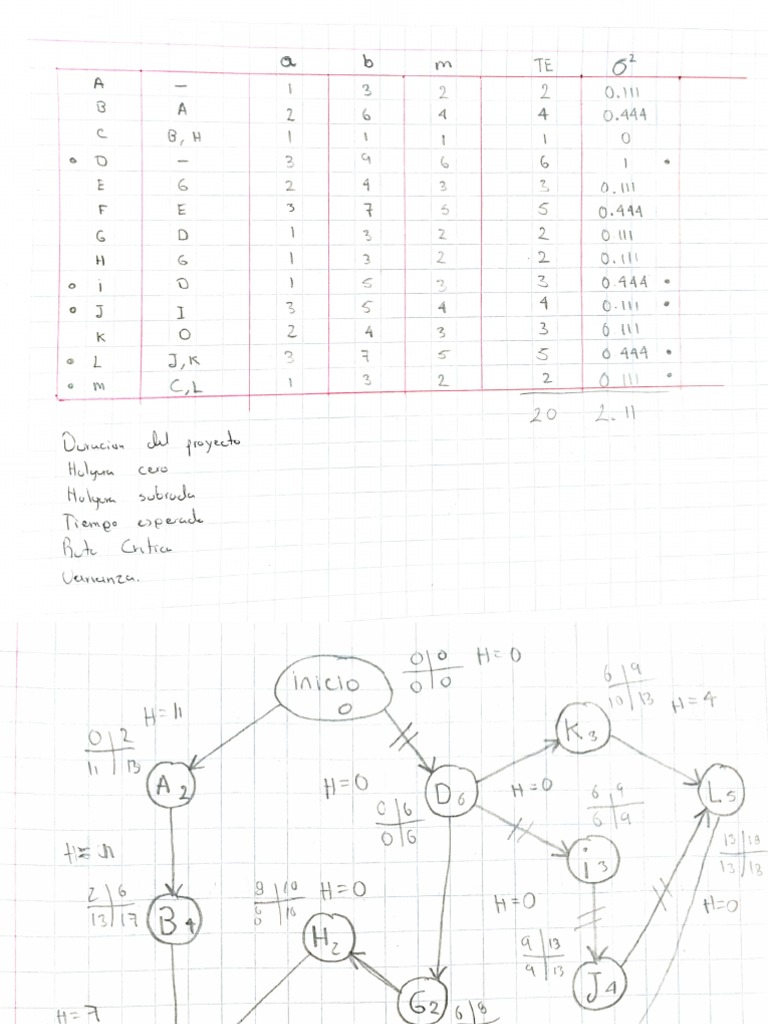 a b m TE σ²
A — 1 3 2 2 0.111
B A 2 6 4 4 0.444
C B, H 1 1 1 1 0
• D — 3 9 6 6 1 •
E G 2 4 3 3 0.111
F E 3 7 5 5 0.444
G D 1 3 2 2 0 111
H G 1 3 2 2 0.111
• i D 1 5 3 3 0.444 •
• J I 3 5 4 4 0.111 •
K D 2 4 3 3 0 111
• L J, K 3 7 5 5 0 444 •
• m C, L 1 3 2 2 0 111 •
20 2.11
Duracion del proyecto
Holgura cero
Holgura
Tiempo esperado
Ruta Critica
Varianza.
inicio
0
0 0
0 0
H=0
6 9
10 13
H=4
K3
H=11
0 2
11 13
A2
H=0
0 6
0 6
D6
H=0
6 9
6 9
i3
L5
13 18
13 18
H=0
2 6
13 17
B4
H=0
H2
H=0
9 13
9 13
J4
G2
6 8
H=7